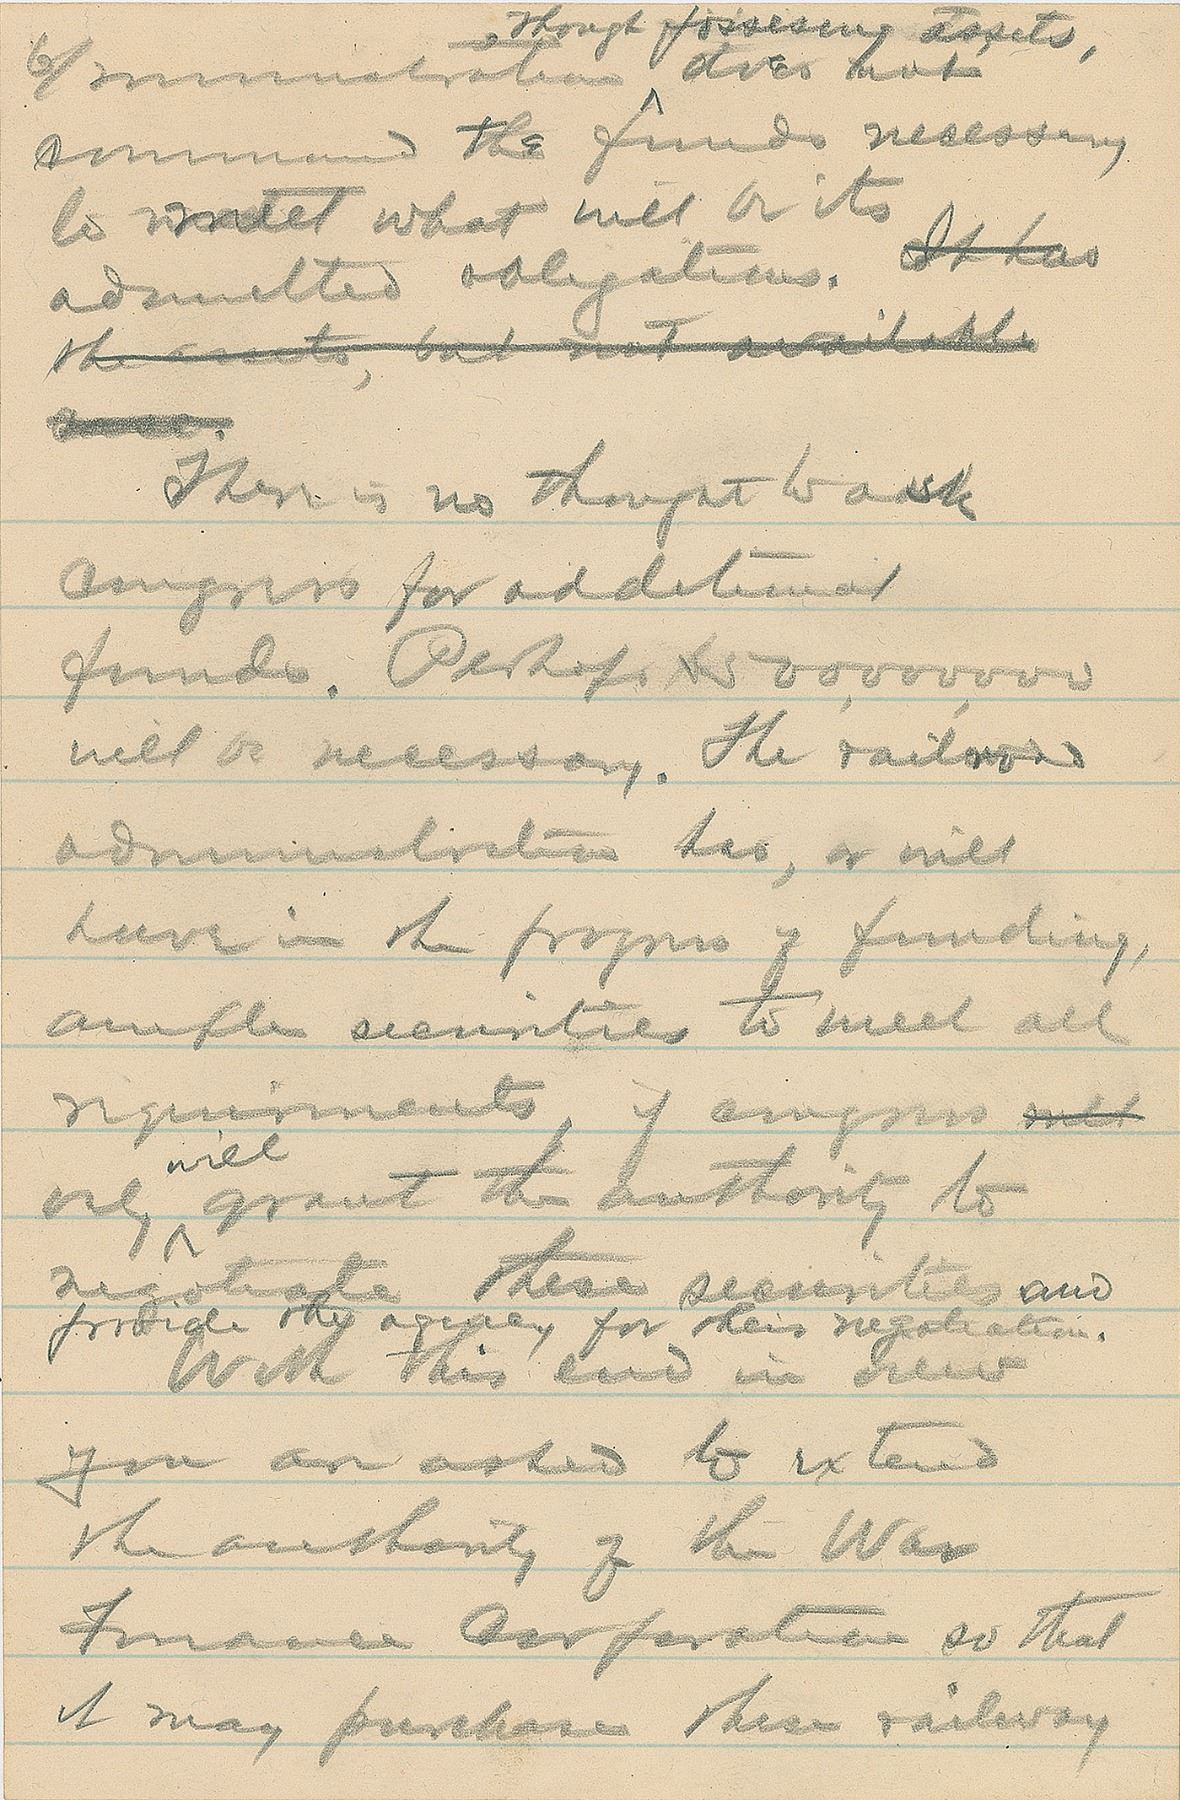 though possessing assets,
6/ ministration does not
command the funds necessary
to meet what will be its
admitted obligations. It has
the assets, but not available
There is no thought to ask
Congress for additional
funds. Perhaps 500,000,000
will be necessary. The railroad
administration has, or will
have in the progress of funding,
ample securities to meet all
requirements, if congress will
only will grant the authority to
negotiate these securities and
provide the agency for their negotiation.
With this end in view
you are asked to extend
the authority of the War
Finance Corporation so that
it may purchase these railway